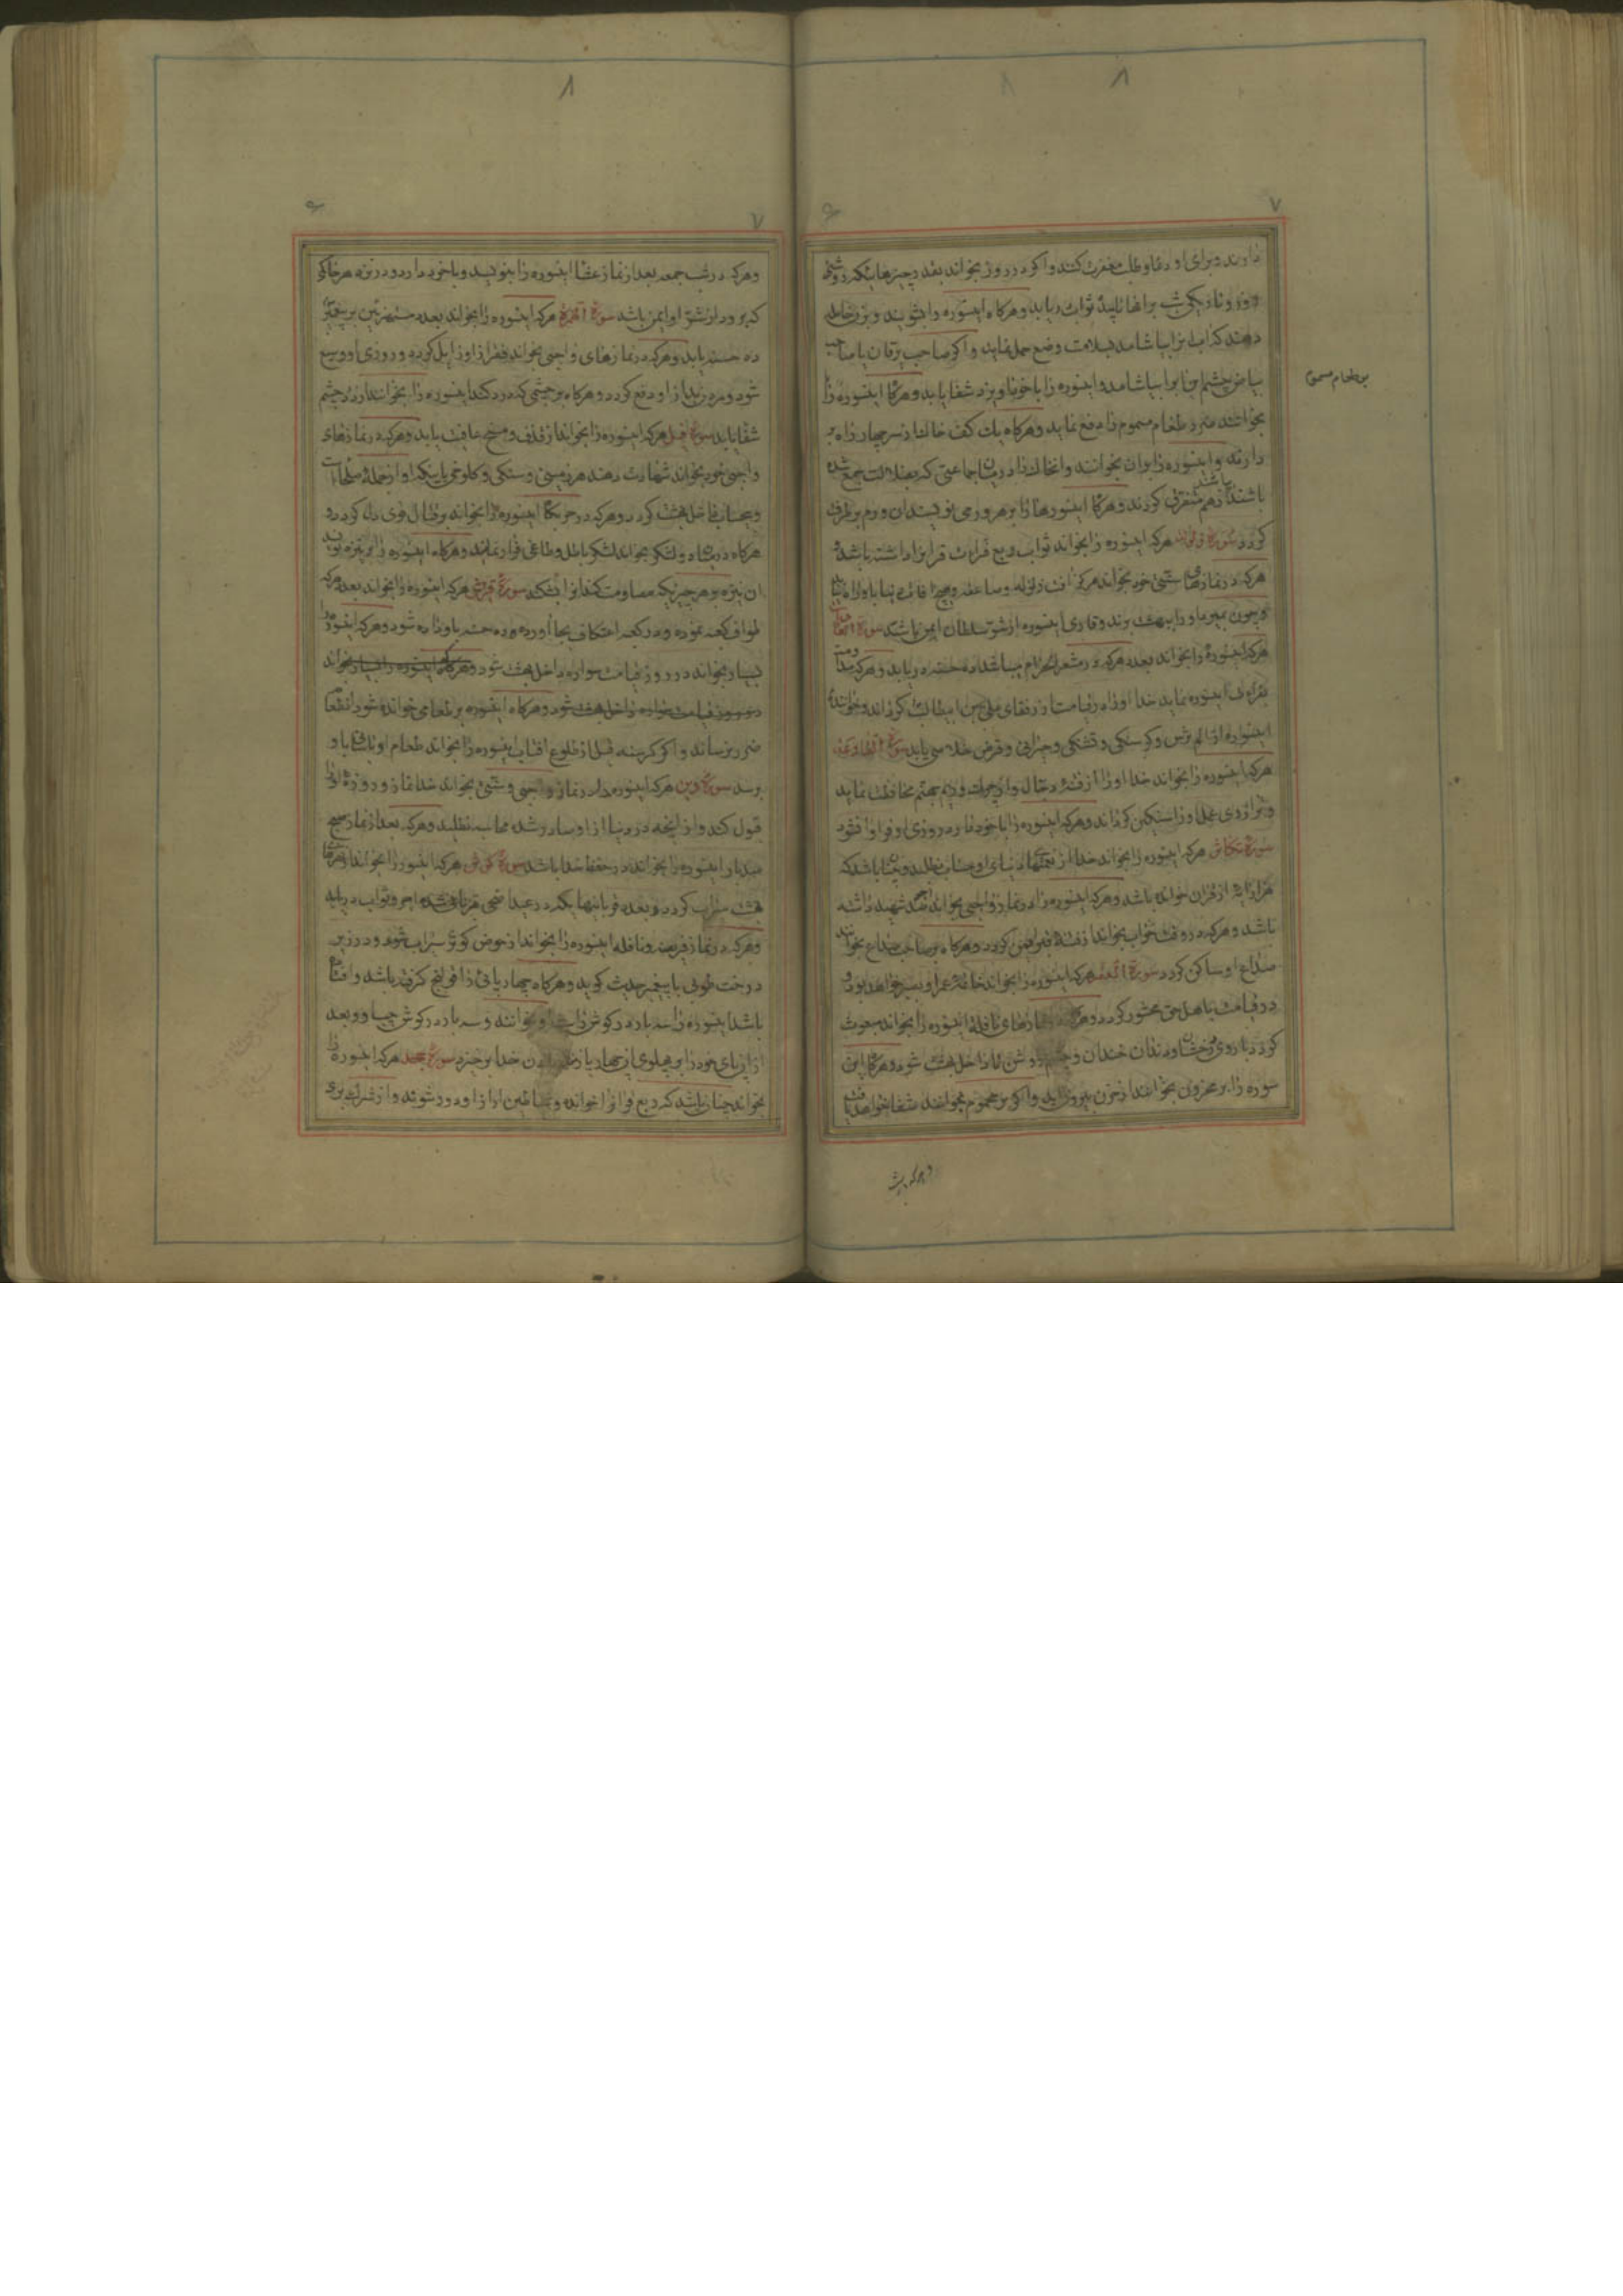 ۸
۷
دارند و برای او دعا و طلب مغفرت کنند و اگر در روز بخواند بعدد چیزهائیکه روشنی
روز و تاریکی شب بر آنها تابیده ثواب دریابد و هرگاه اینسوره را بشویند و بزن حامله
دهند که آب انرا بیاشامد بسلامت وضع حمل نماید و اگر صاحب یرقان یا صاحب
بیاض چشم این آبرا بیاشامد و اینسوره را با خود آویزد شفا یابد و هرگاه اینسوره را
بخوانند ضرر طعام مسموم را دفع نماید و هرگاه یک کف خاک از سر چهار راه بر
بر طعام مسموم
دارند و اینسوره را بران بخوانند و آنخاک را در میان جماعتی که بضلالت جمع شده
باشند از هم متفرق گردند و هرگاه اینسوره را بر هر ورمی نویسند آن ورم برطرف
گردد سورۀ زلزله هرکه اینسوره را بخواند ثواب ربع قرائت قرآنرا داشته باشد و
هرکه در نمازهای سنتی خود بخواند هرگز آفت زلزله و صاعقه و هیچ آفات دنیا باو
و چون بمیرد او را ببهشت برند و قاری اینسوره از شر سلطان ایمن باشد سورۀ العادیات
هرکه اینسوره را بخواند بعدد هرکه در مشعر الحرام میباشد ده حسنه دریابد و هرکه مداومت
بقرائت اینسوره نماید خدا او را در قیامت از رفقای علی بن ابیطالب گرداند و خوانندۀ
اینسوره از الم ترس و گرسنگی و تشنگی و قرض خلاصی یابد سورۀ القارعه
هرکه اینسوره را بخواند خدا او را از فتنه دجال و از جهنم محافظت نماید
و ترازوی عمل او را سنگین گرداند و هرکه اینسوره را با خود دارد روزی او فراوان شود
سورۀ تکاثر هرکه اینسوره را بخواند خدا از نعمتهای دنیای او حساب نطلبد و چنان باشد که
هزار آیه از قرآن خوانده باشد و هرکه اینسوره را در نماز واجبی بخواند اجر صد شهید داشته
باشد و هرکه در وقت خواب بخواند از فتنه قبر ایمن گردد و هرگاه بر صاحب صداع بخوانند
صداع او ساکن گردد سورۀ العصر هرکه اینسوره را بخواند خاتمۀ عمر او بصبر خواهد بود و
در قیامت با اهل حق محشور گردد و هرکه در نمازهای نافله اینسوره را بخواند مبعوث
گردد با روی درخشان و دندان خندان و چشم روشن تا داخل بهشت شود و هرگاه این
سوره را بر محزون بخوانند از حزن بیرون آید و اگر بر محموم بخوانند شفا خواهد یافت
و هرکه در شب
۸
۷
و هرکه در شب جمعه بعد از نماز عشا اینسوره را بنویسد و با خود دارد و در نزد هر حاکم
که برود از شر او ایمن باشد سورۀ الهمزه هرکه اینسوره را بخواند بعدد مستهزئین بر پیغمبر
ده حسنه یابد و هرکه در نمازهای واجبی بخواند فقر از او زایل گردد و روزی او وسیع
شود و مردن بد از او دفع گردد و هرگاه بر چشمی که درد کند اینسوره را بخوانند از درد چشم
شفا یابد سورۀ فیل هرکه اینسوره را بخواند از قذف و مسخ عافیت یابد و هرکه در نمازهای
واجبی خود بخواند شهادت دهند هر زمینی و سنگی و کلوخی باینکه او از جمله مصلیان است
و بیحساب داخل بهشت گردد و هرکه در جنگ اینسوره را بخواند بر قتال قوی دل گردد و
هرگاه در میان دو لشکر بخواند لشکر باطل و طاغی فرار نماید و هرگاه اینسوره را بر نیزه نویسند
آن نیزه بهر چیزیکه مصادمت کند آنرا بشکند سورۀ قریش هرکه اینسوره را بخواند بعدد هرکه
طواف کعبه نموده و در کعبه اعتکاف بجا آورده ده حسنه باو داده شود و هرکه اینسوره را
بسیار بخواند در روز قیامت سواره داخل بهشت شود و هرکه اینسوره را بسیار بخواند
در روز قیامت سواره داخل بهشت شود و هرگاه اینسوره بر طعامی خوانده شود آن طعام
ضرر نرساند و اگر گرسنه قبل از طلوع آفتاب اینسوره را بخواند طعام او باو
برسد سورۀ دین هرکه اینسوره را در نماز واجبی و سنتی بخواند خدا نماز و روزۀ او را
قبول کند و از آنچه در دنیا از او صادر شده محاسبه نطلبد و هرکه بعد از نماز صبح
صد بار اینسوره را بخواند در حفظ خدا باشد سورۀ کوثر هرکه اینسوره را بخواند از نهرهای
بهشت سیراب گردد و بعدد قربانیهائیکه در عید اضحی قربانی شده اجر و ثواب دریابد
و هرکه در نماز فریضه و نافله اینسوره را بخواند از حوض کوثر سیراب شود و در زیر
درخت طوبی با پیغمبر حدیث گوید و هرگاه چهارپائی را قولنج گرفته باشد و افتاده
باشد اینسوره را سه بار در گوش راست او بخوانند و سه بار در گوش چپ او و بعد
از آن پای خود را بر پهلوی آن چهارپا زنند باذن خدا برخیزد سورۀ جحد هرکه اینسوره را
بخواند چنان باشد که ربع قرآنرا خوانده و شیاطین از او دور شوند و از شرک بری